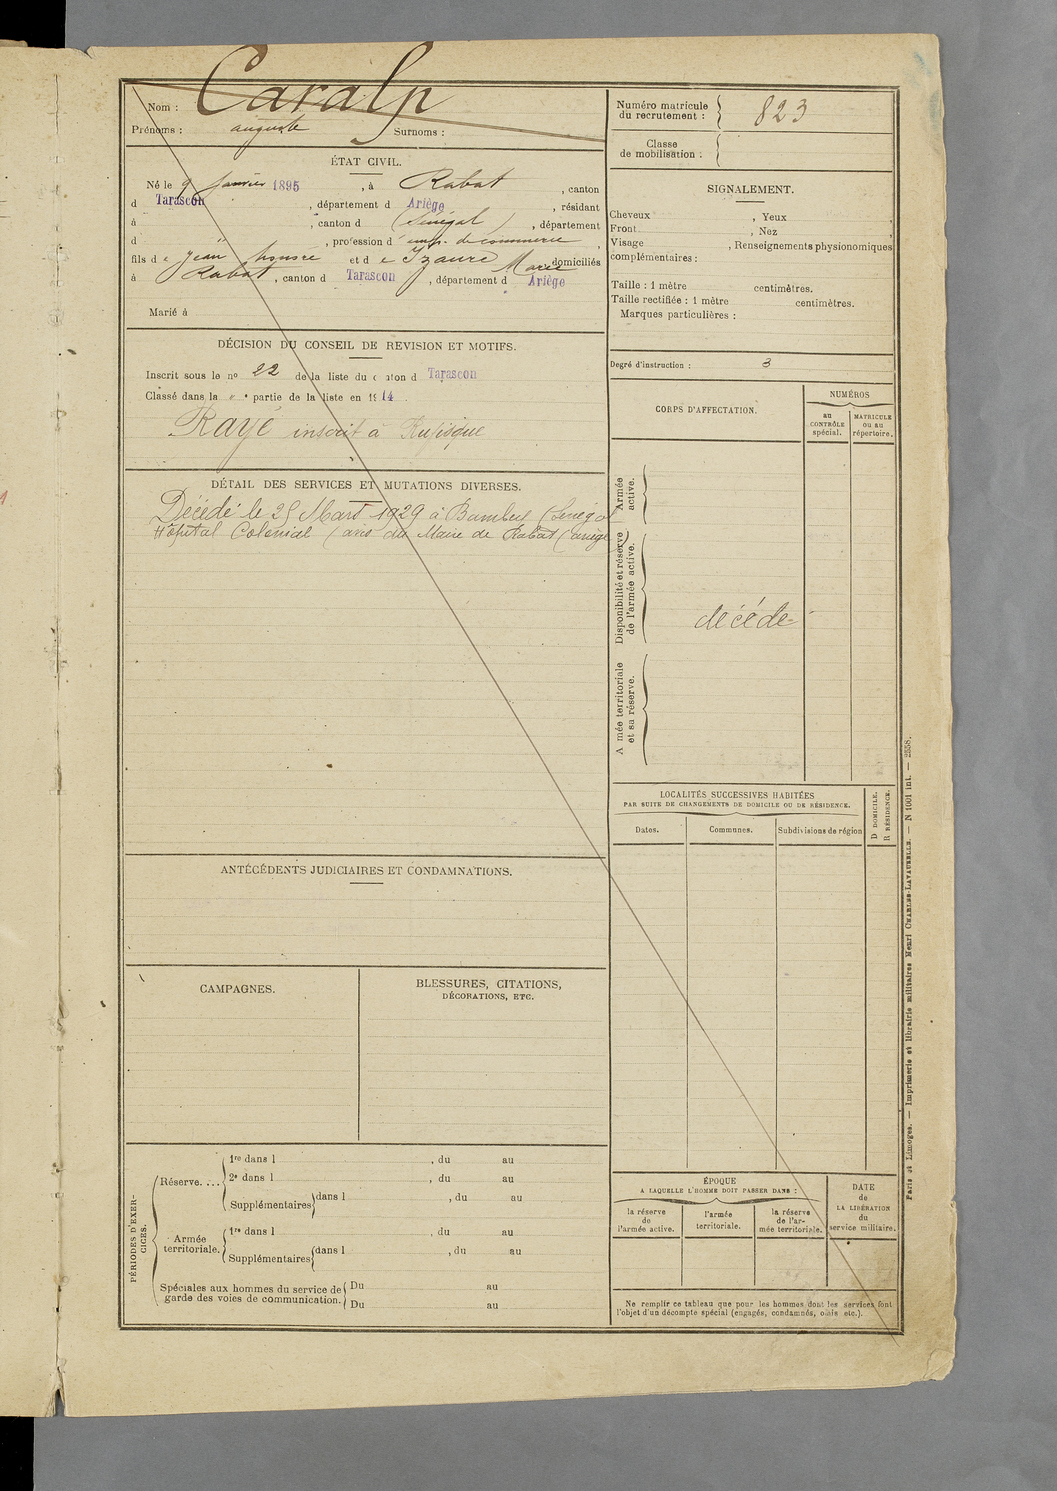 Nom : Caralp
Prénoms : auguste Surnoms :
ÉTAT CIVIL.
Né le 9 Janvier 1895, à Rabat, canton
d Tarascon, département d Ariège, résidant
à , canton d (Sénégal), département
d , profession d emp. de commerce,
fils de Jean honoré et de Izaure Marie domiciliés
à Rabat, canton d Tarascon, département d Ariège
Marié à
DÉCISION DU CONSEIL DE REVISION ET MOTIFS.
Inscrit sous le nº 22 de la liste du canton d Tarascon
Classé dans la " e partie de la liste en 1914.
Rayé inscrit à Rufisque
DÉTAIL DES SERVICES ET MUTATIONS DIVERSES.
Décédé le 25 Mars 1929 à Bambey (Sénégal
Hôpital Colonial (avis du Maire de Rabat (ariège)
ANTÉCÉDENTS JUDICIAIRES ET CONDAMNATIONS.
CAMPAGNES.
BLESSURES, CITATIONS,
DÉCORATIONS, ETC.
PÉRIODES D'EXER-
CICES.
Réserve....
1re dans l , du au
2e dans l , du au
Supplémentaires dans l , du au
Armée
territoriale.
1re dans l , du au
Supplémentaires dans l , du au
Spéciales aux hommes du service de
garde des voies de communication.
Du au
Du au
Numéro matricule
du recrutement : 823
Classe
de mobilisation :
SIGNALEMENT.
Cheveux , Yeux
Front , Nez
Visage , Renseignements physionomiques
complémentaires :
Taille : 1 mètre centimètres.
Taille rectifiée : 1 mètre centimètres.
Marques particulières :
Degré d'instruction : 3
CORPS D'AFFECTATION.
NUMÉROS
au
CONTRÔLE
spécial.
MATRICULE
ou au
répertoire.
Armée
active.
Disponibilité et réserve
de l'armée active.
décédé
A mée territoriale
et sa réserve.
LOCALITÉS SUCCESSIVES HABITÉES
PAR SUITE DE CHANGEMENTS DE DOMICILE OU DE RÉSIDENCE.
D DOMICILE.
R RÉSIDENCE.
Dates. Communes. Subdivisions de région
ÉPOQUE
A LAQUELLE L'HOMME DOIT PASSER DANS :
la réserve
de
l'armée active.
l'armée
territoriale.
la réserve
de l'ar-
mée territoriale.
DATE
de
LA LIBÉRATION
du
service militaire.
Ne remplir ce tableau que pour les hommes dont les services font
l'objet d'un décompte spécial (engagés, condamnés, omis etc.).
Paris et Limoges. — Imprimerie et librairie militaires Henri CHARLES-LAVAUZELLE. — N 1001 int. — 2558.